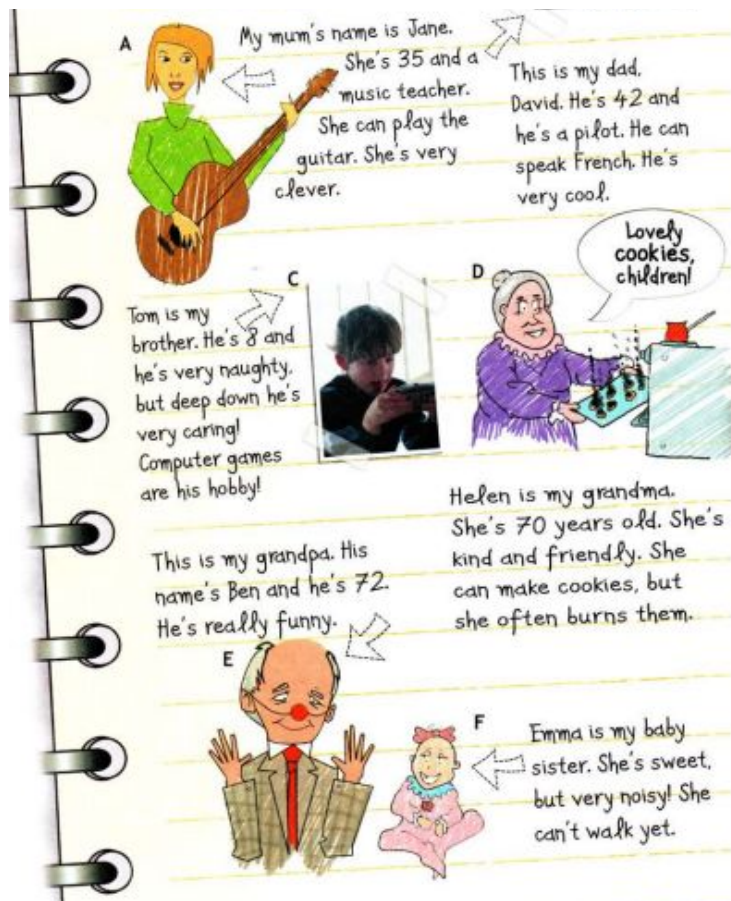 A
My mum's name is Jane.
She's 35 and a
music teacher.
She can play the
guitar. She's very
clever.
This is my dad,
David. He's 42 and
he's a pilot. He can
speak French. He's
very cool.
C
Tom is my
brother. He's 8 and
he's very naughty,
but deep down he's
very caring!
Computer games
are his hobby!
D
Lovely
cookies,
children!
Helen is my grandma.
She's 70 years old. She's
kind and friendly. She
can make cookies, but
she often burns them.
This is my grandpa. His
name's Ben and he's 72.
He's really funny.
E
F
Emma is my baby
sister. She's sweet,
but very noisy! She
can't walk yet.